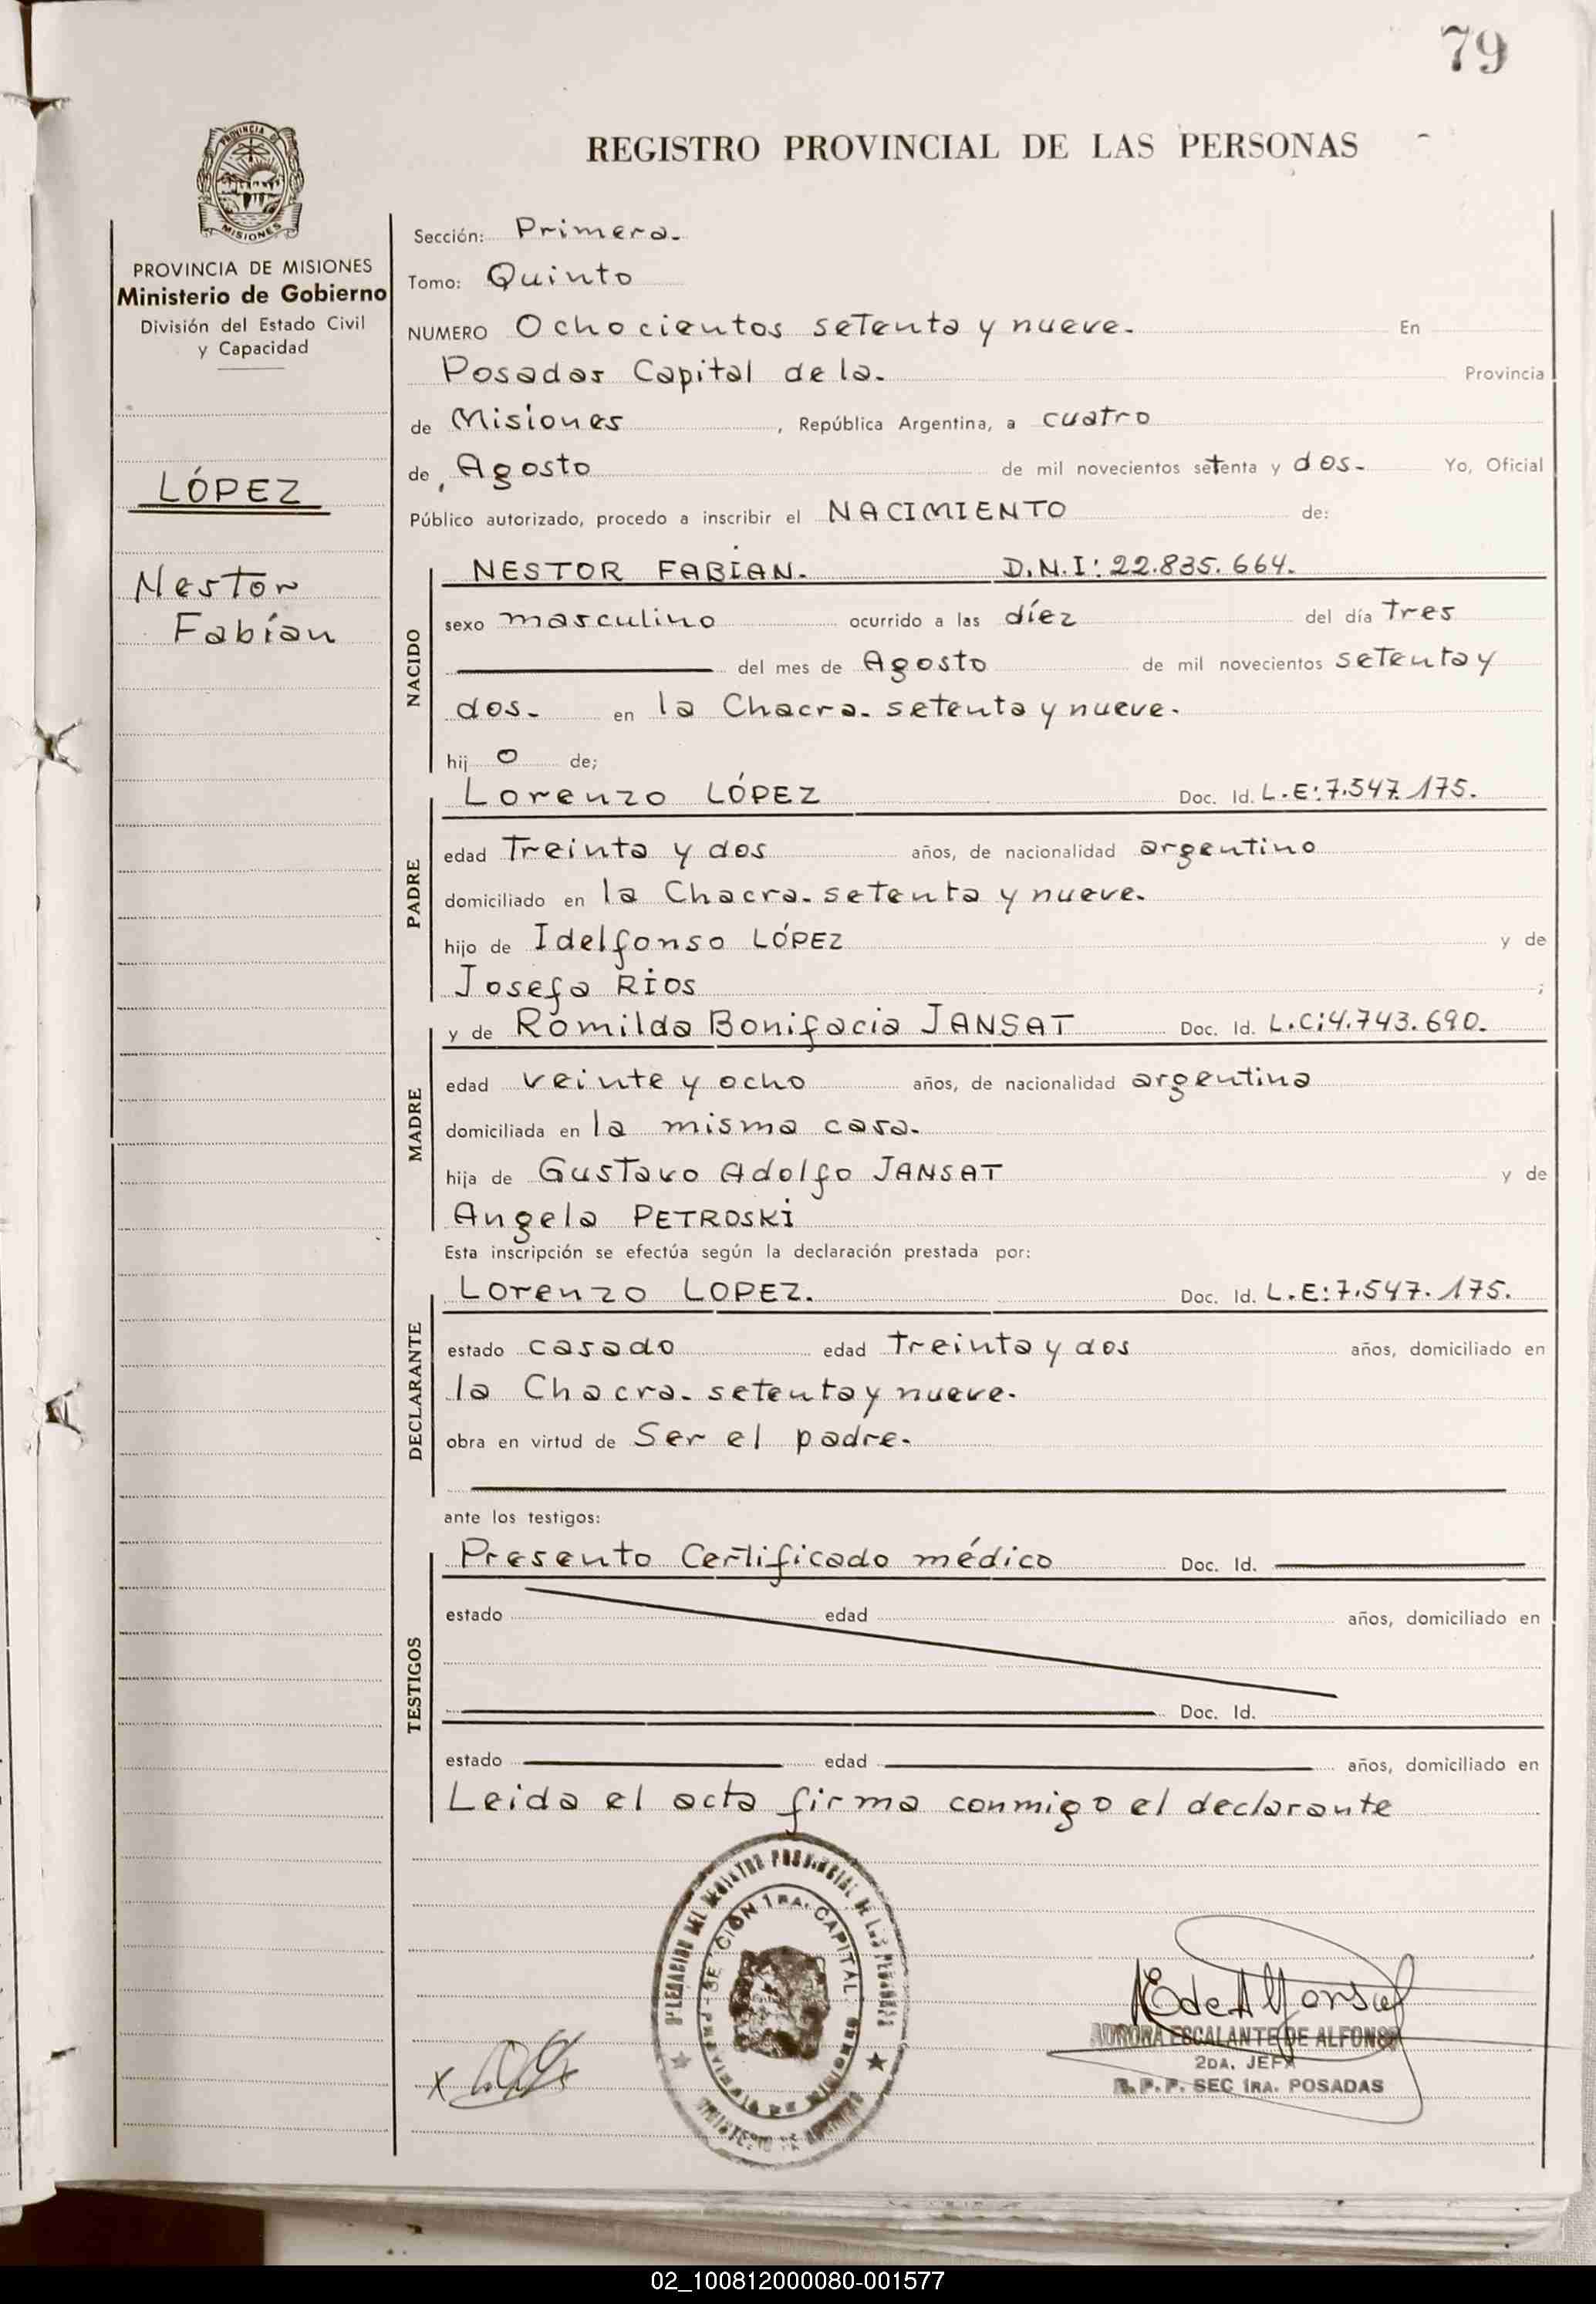 79
REGISTRO PROVINCIAL DE LAS PERSONAS
PROVINCIA DE MISIONES
Ministerio de Gobierno
División del Estado Civil
y Capacidad
LÓPEZ
Nestor
Fabián
Sección: Primera.
Tomo: Quinto
NUMERO Ochocientos setenta y nueve. En
Posadas Capital de la. Provincia
de Misiones, República Argentina, a cuatro
de, Agosto de mil novecientos setenta y dos. Yo, Oficial
Público autorizado, procedo a inscribir el NACIMIENTO de:
NACIDO
NESTOR FABIAN. D.N.I: 22.835.664.
sexo masculino ocurrido a las díez del día tres
del mes de Agosto de mil novecientos setenta y
dos. en la Chacra. setenta y nueve.
hij o de;
PADRE
Lorenzo LÓPEZ Doc. Id. L.E:7.547.175.
edad Treinta y dos años, de nacionalidad argentino
domiciliado en la Chacra. setenta y nueve.
hijo de Idelfonso LÓPEZ y de
Josefa RIOS ;
MADRE
y de Romilda Bonifacia JANSAT Doc. Id. L.C:4.743.690.
edad veinte y ocho años, de nacionalidad argentina
domiciliada en la misma casa.
hija de Gustavo Adolfo JANSAT y de
Angela PETROSKI
Esta inscripción se efectúa según la declaración prestada por:
DECLARANTE
Lorenzo LOPEZ. Doc. Id. L.E:7.547.175.
estado casado edad Treinta y dos años, domiciliado en
la Chacra. setenta y nueve.
obra en virtud de Ser el padre.
ante los testigos:
TESTIGOS
Presento Certificado médico Doc. Id.
estado edad años, domiciliado en
Doc. Id.
estado edad años, domiciliado en
Leida el acta firma conmigo el declarante
PROVINCIA DE MISIONES
DEL REGISTRO PROVINCIAL DE LAS PERSONAS
SECCION 1RA. CAPITAL
PROVINCIA DE MISIONES
MINISTERIO DE GOBIERNO
x
AURORA ESCALANTE DE ALFONSO
2DA. JEFA
R.P.P. SEC 1RA. POSADAS
02_100812000080-001577